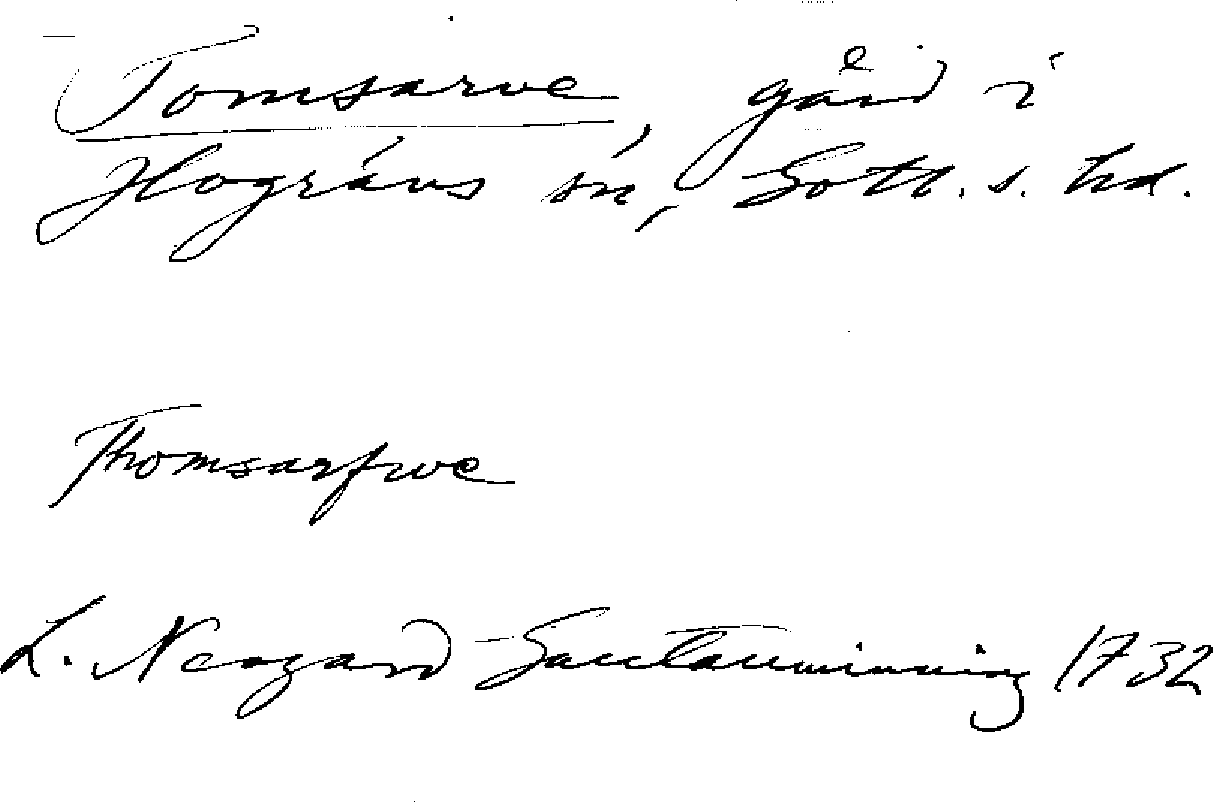 Tomsarve, gård i
Hogräns sn, Gotl. s. hd.
Thomsarfwe
L. Neogard - Gautauminning 1732